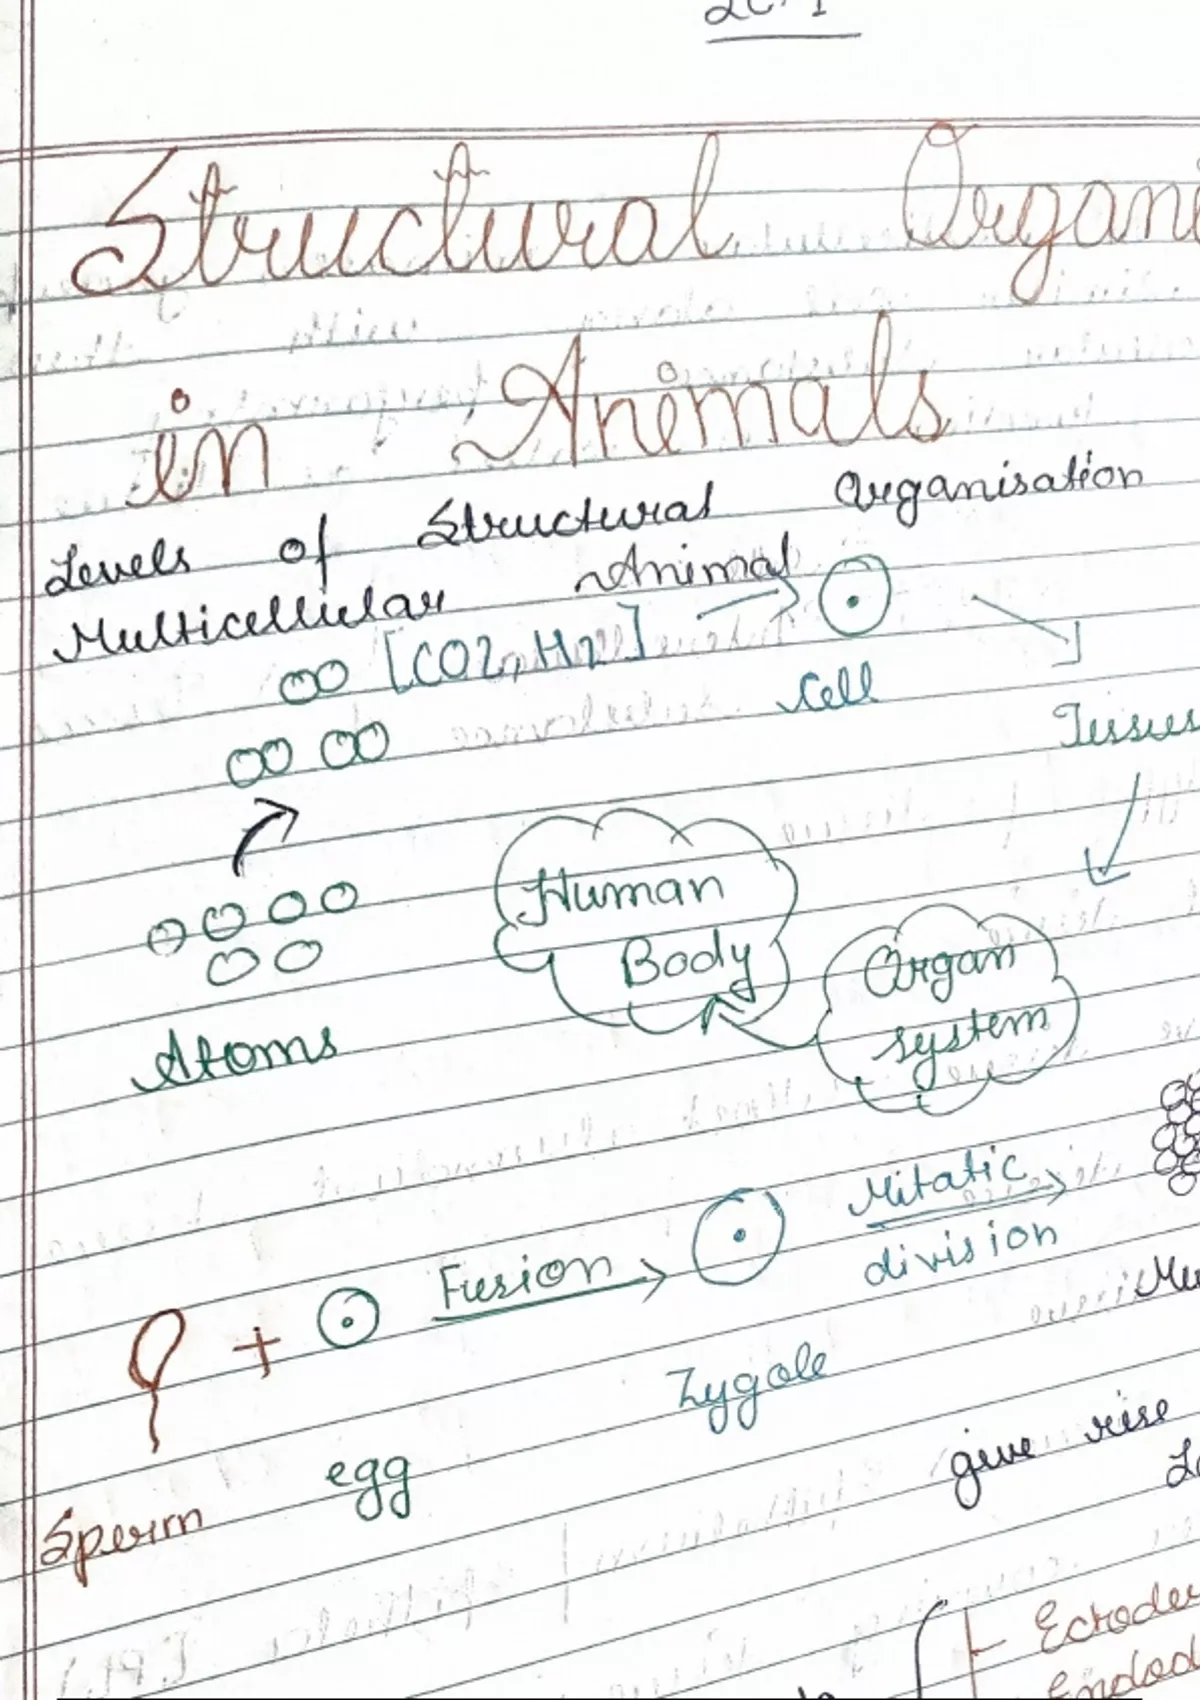 Structural Organi
in Animals
Levels of Structural Organisation
Multicellular Animal
[CO2, H2]
Cell
Tissues
Human
Body
Organ
system
Atoms
Mitatic
division
Fusion
+
Mu
Zygole
egg
Sperm
give rise
Ectoder
Endod